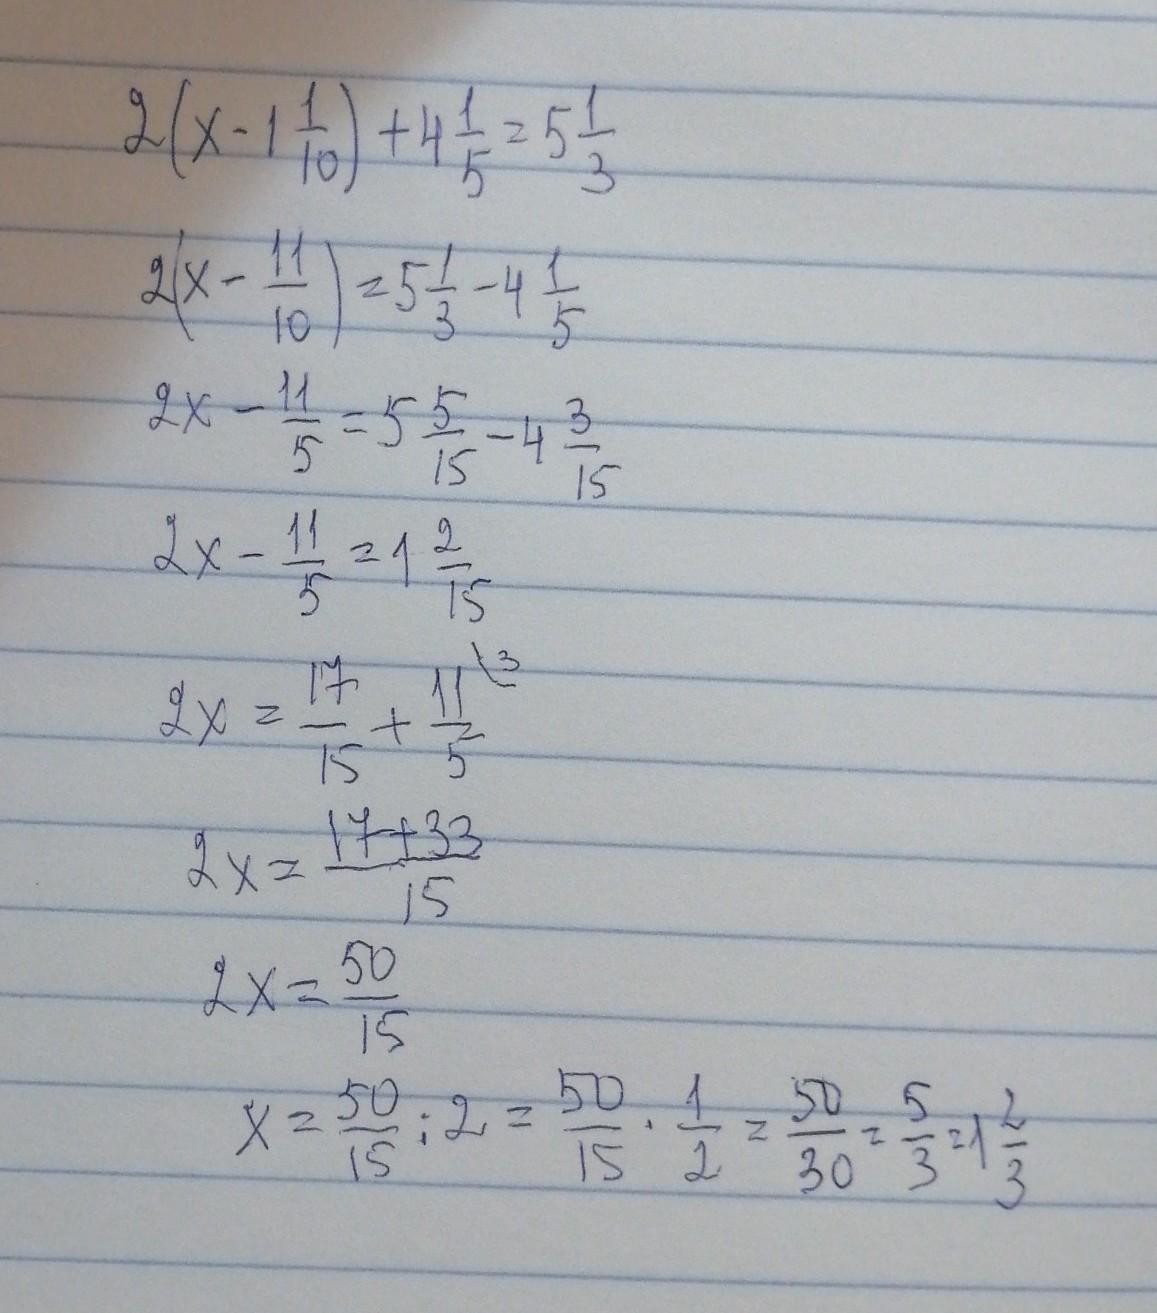 2(x - 1 1/10) + 4 1/5 = 5 1/3
2(x - 11/10) = 5 1/3 - 4 1/5
2x - 11/5 = 5 5/15 - 4 3/15
2x - 11/5 = 1 2/15
2x = 17/15 + 11/5 \3
2x = (17+33)/15
2x = 50/15
x = 50/15 : 2 = 50/15 · 1/2 = 50/30 = 5/3 = 1 2/3